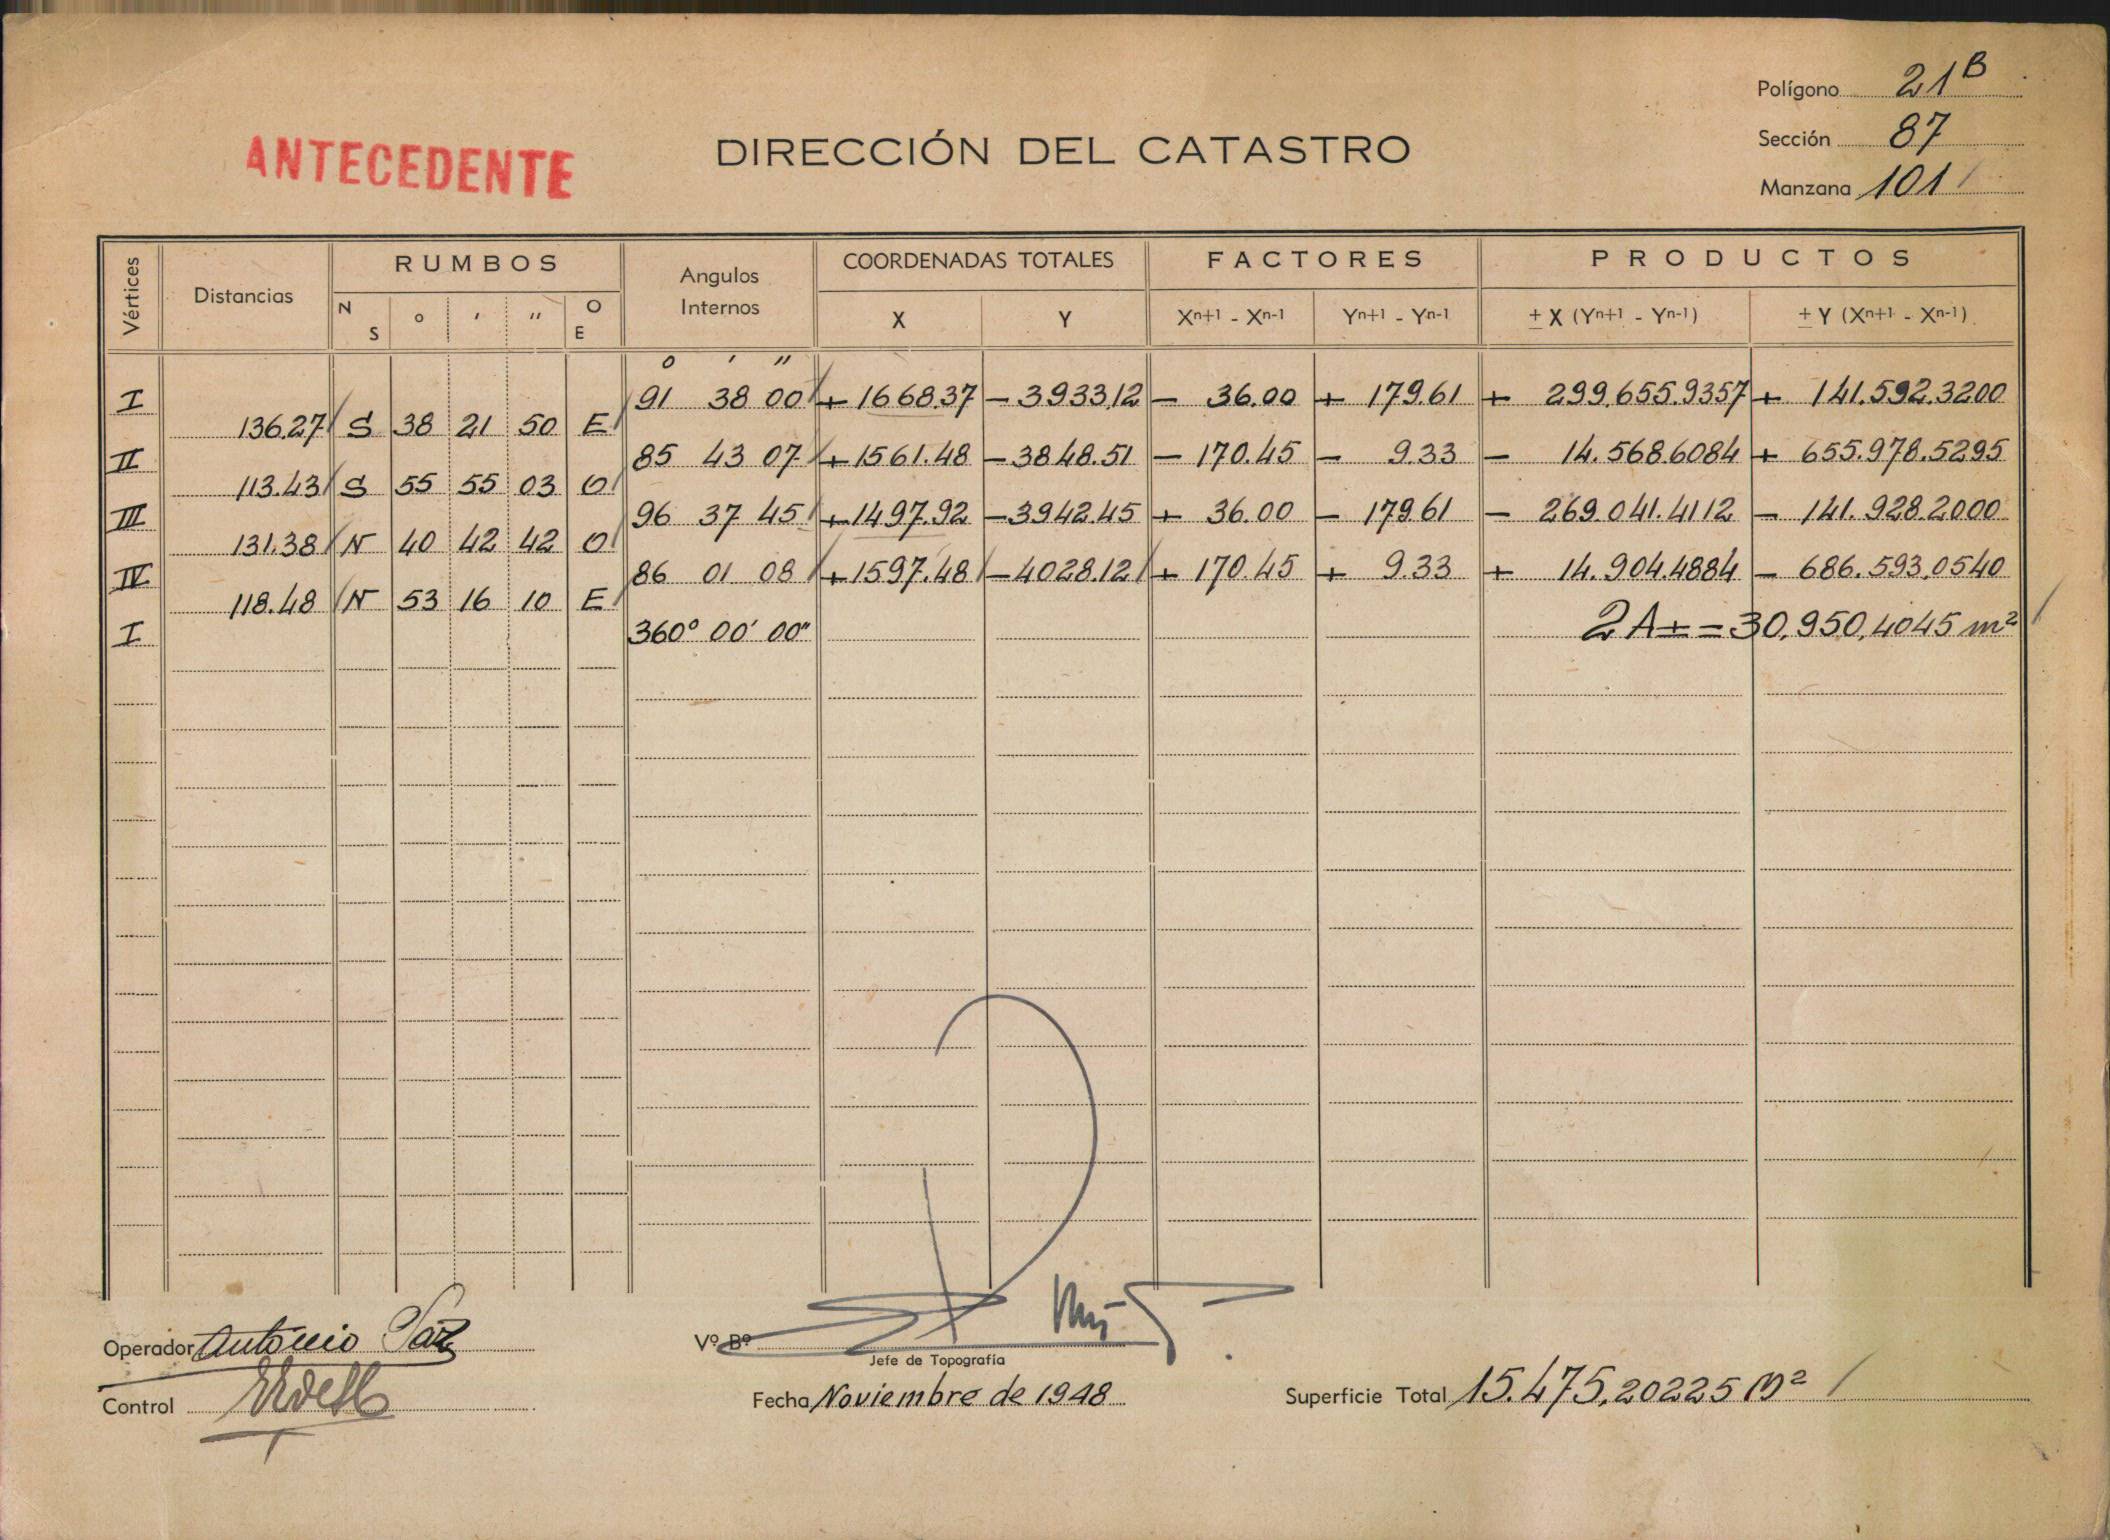 Polígono 21B
Sección 87
Manzana 101
ANTECEDENTE
DIRECCIÓN DEL CATASTRO
Vértices Distancias RUMBOS Angulos Internos COORDENADAS TOTALES FACTORES PRODUCTOS
N S ° ' " O E X Y Xn+1 - Xn-1 Yn+1 - Yn-1 ± X (Yn+1 - Yn-1) ± Y (Xn+1 - Xn-1)
° ' "
I 91 38 00 + 1668.37 - 3933.12 - 36.00 + 179.61 + 299.655.9357 + 141.592.3200
136.27 S 38 21 50 E
II 85 43 07 + 1561.48 - 3848.51 - 170.45 - 9.33 - 14.568.6084 + 655.978.5295
113.43 S 55 55 03 O
III 96 37 45 + 1497.92 - 3942.45 + 36.00 - 179.61 - 269.041.4112 - 141.928.2000
131.38 N 40 42 42 O
IV 86 01 08 + 1597.48 - 4028.12 + 170.45 + 9.33 + 14.904.4884 - 686.593.0540
118.48 N 53 16 10 E
I 360° 00' 00" 2A± = 30.950,4045 m²
Operador Antonio Paz
Vº Bº
Jefe de Topografía
Control
Fecha Noviembre de 1948
Superficie Total 15.475,20225 m²